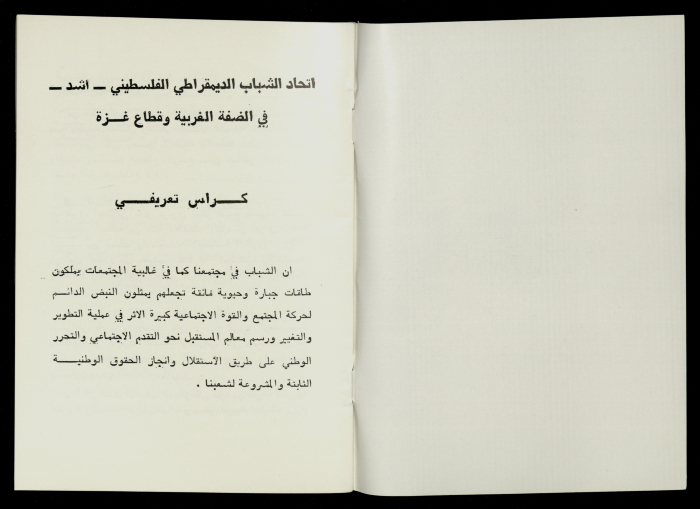 اتحاد الشباب الديمقراطي الفلسطيني ــ اشد ــ
في الضفة الغربية وقطاع غـــزة
كـــراس تعريفـــي
ان الشباب في مجتمعنا كما في غالبية المجتمعات يملكون
طاقات جبارة وحيوية فائقة تجعلهم يمثلون النبض الدائـم
لحركة المجتمع والقوة الاجتماعية كبيرة الاثر في عملية التطوير
والتغيير ورسم معالم المستقبل نحو التقدم الاجتماعي والتحرر
الوطني على طريق الاستقلال وانجاز الحقوق الوطنيـــة
الثابتة والمشروعة لشعبنا .